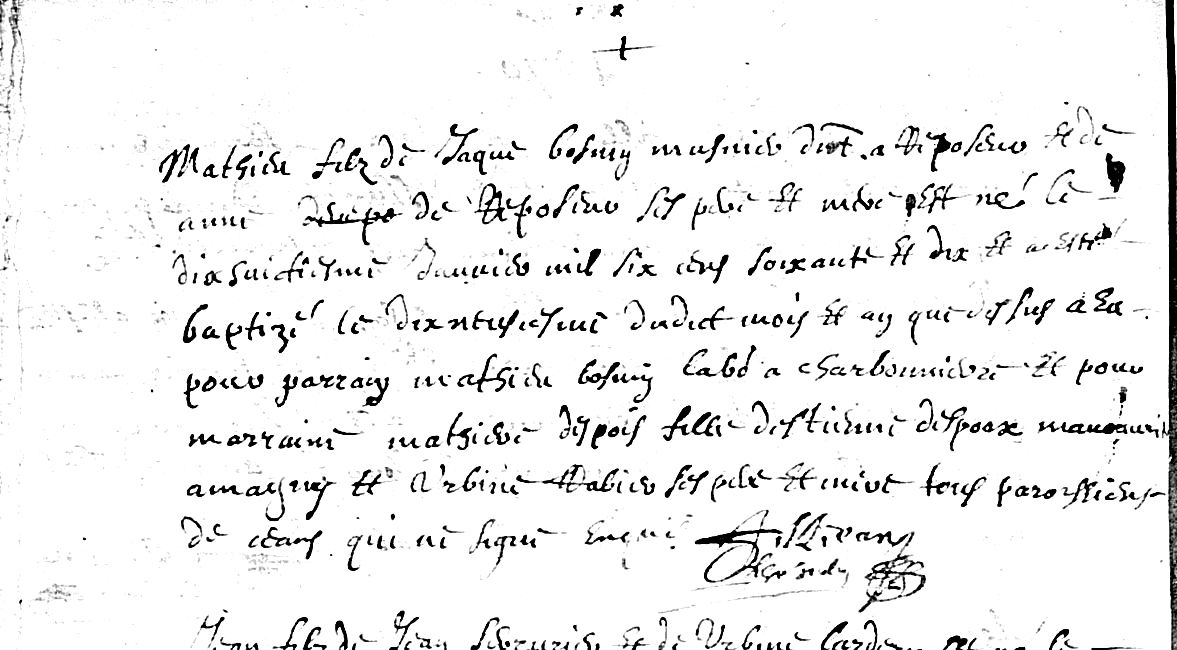 Mathieu filz de Jaque bosmy musnier dict a Reposeur Et de
anne de Reposeur ses pere Et mere Est né le
dixhuictiesme Janvier mil six cens soixante Et dix Et a esté
baptizé le dixneufiesme dudict mois Et an que dessus a Eu
pour parrain mathieu bosmy lab.r a charbonniere Et pour
marraine mathieve despois fille destienne despoix
Et Urbine ses pere Et mere tous paroissiens
de ceans qui ne signe Enquis
Jean filz de Jean Et de Urbine né le